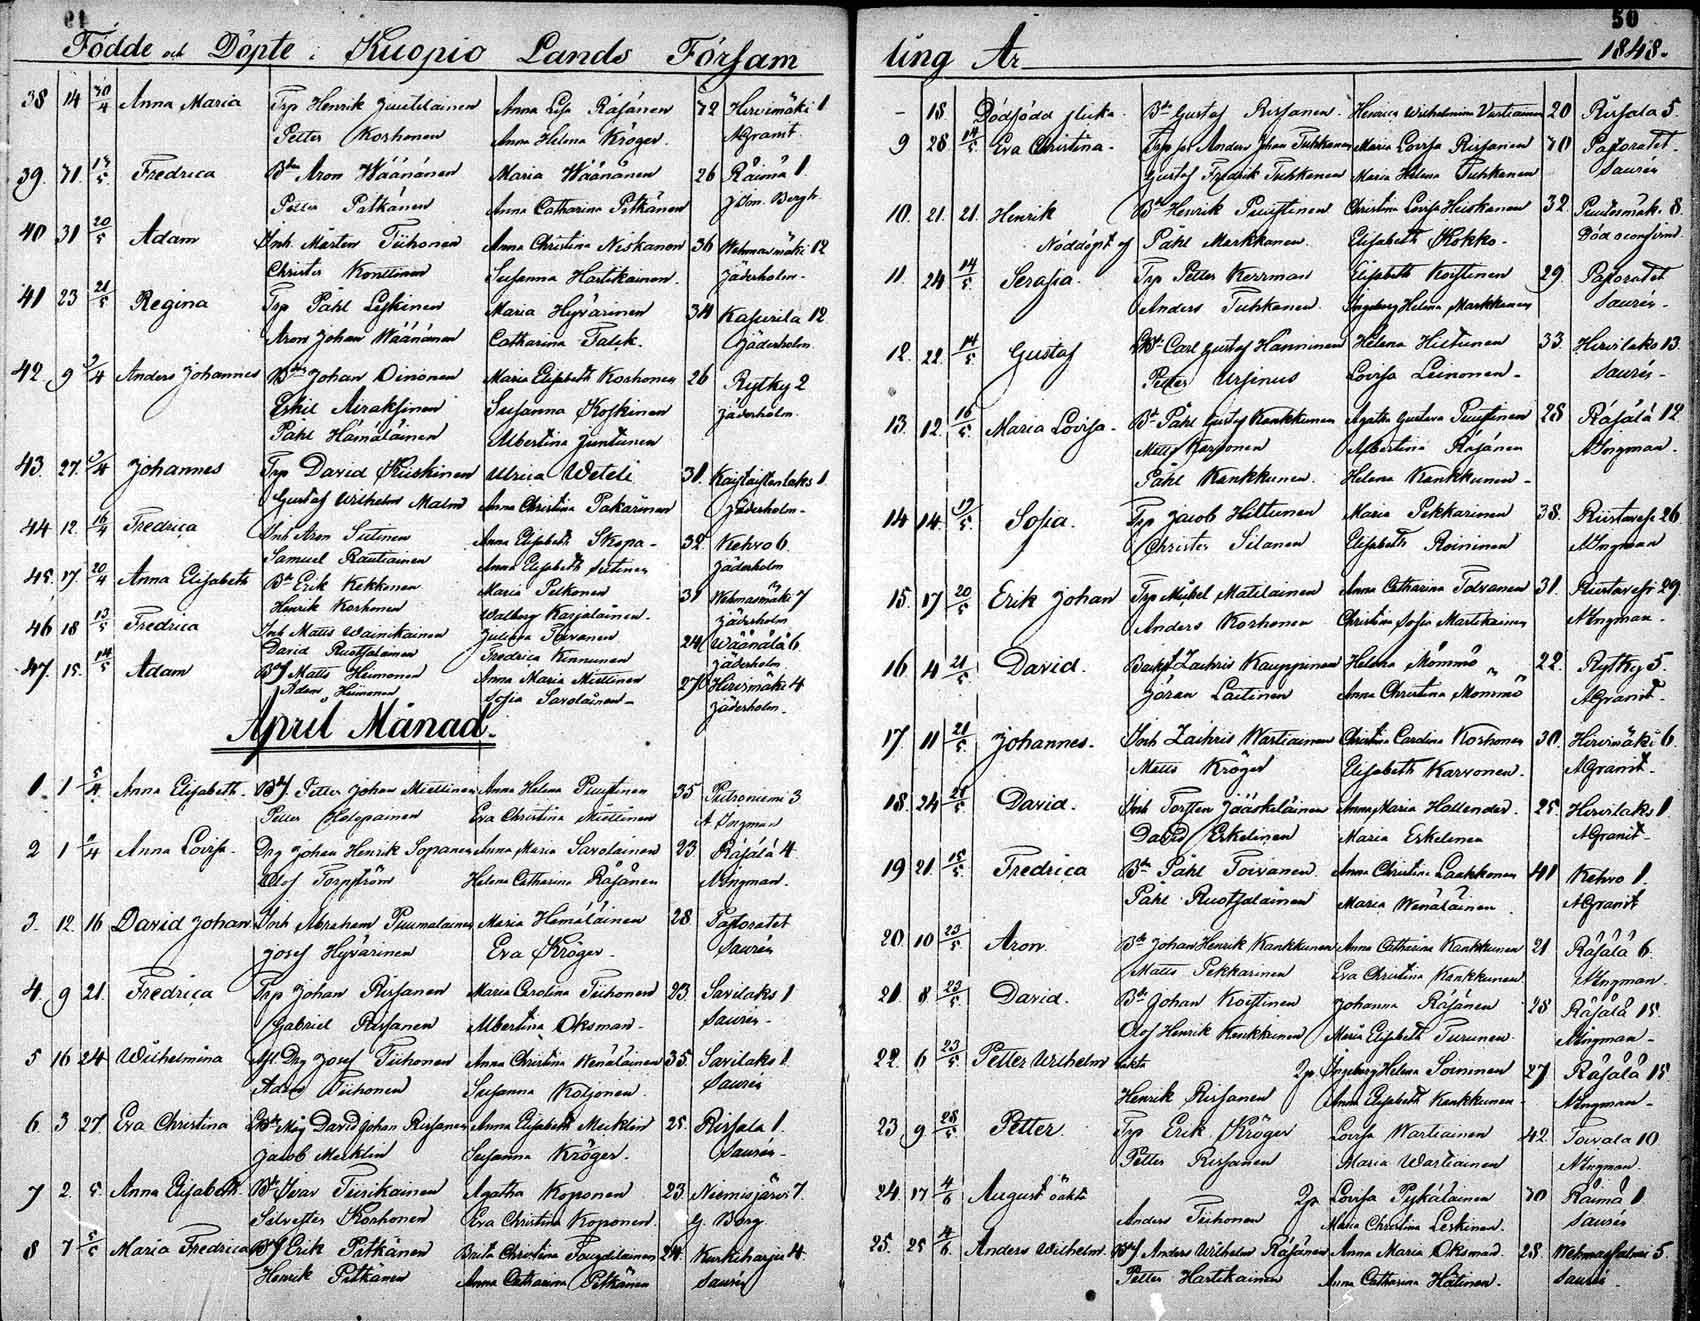 61
50
Födde och Döpte i Kuopio Lands Församling År 1848.
38 14 30/4 Anna Maria Trp Henrik Juutilainen Anna Lisa Räsänen 72 Hirvimäki 1
Petter Korhonen Anna Helena Kröger A Granit.
39. 71. 5 Fredrica Bd Aron Wäänänen Maria Wäänänen 26 Räimä 1
Petter Pitkänen Anna Catharina Pitkänen J Dom. Bergh
40 31 20/5 Adam Inh Mårten Tiihonen Anna Christina Niskanen 36 Wehmasmäki 12
Christer Konttinen Susanna Hartikainen. Jäderholm-
41 23 21/5 Regina Trp Påhl Leskinen Maria Hyvärinen 34 Kasurila 12
Aron Johan Wäänänen Catharina Falck. Jäderholm.
42. 9 2/4 Anders Johannes Bd Johan Oinonen Maria Elisabeth Korhonen 26 Rytky 2
Eskil Airaksinen Susanna Koskinen Jäderholm.
Påhl Hämäläinen Albertina Juntunen
43. 27. 2/4 Johannes Trp David Kuiskinen Ulrica Weteli 31. 1
Gustaf Wilhelm Malm Anna Christina Pakarinen Jäderholm-
44 12. 16/4 Fredrica Inh Aron Sutinen Anna Elisabeth Skopa- 32. Kehvo 6.
Samuel Rautiainen Anna Elisabeth Sutinen Jäderholm
45. 17. 20/4 Anna Elisabeth Bd Erik Kekkonen Maria Pelkonen 31 Wehmasmäki 7
Henrik Korhonen Walborg Karjalainen. Jäderholm
46 18 13/5 Fredrica Inh Matts Wainikainen Juliana Toivanen 24 Wäänälä 6
David Ruotsalainen Fredrica Kinnunen Jäderholm
47. 15. 14/5 Adam Bdf Matts Heimonen Anna Maria Miettinen 27 Hirvimäki 4
Adam Heimonen Sofia Savolainen- Jäderholm.
April Månad.
1. 1 5/4 Anna Elisabeth. Bdf Petter Johan Miettinen Anna Helena Puustinen 35 Putroniemi 3
Petter Holopainen Eva Christina Miettinen A Ingman
2 1 4 Anna Lovisa. Drg Johan Henrik Sopanen Anna Maria Savolainen 23 Räsälä 4
Olof Torpström Helena Catharina Räsänen A Ingman.
3. 12. 16 David Johan Inh Abraham Puumalainen Maria Hämäläinen 28 Pastoratet
Josef Hyvärinen Eva Kröger. Saurén
4. 9 21. Fredrica Trp Johan Rissanen Maria Carolina Tiihonen 23. Savilaks 1
Gabriel Rissanen Albertina Oksman. Saurén-
5 16 24 Wilhelmina Drg Josef Tiihonen Anna Christina Wenäläinen 35. Savilaks 1.
Adam Tiihonen Susanna Koljonen. Saurén
6. 3 27. Eva Christina Bd Måg David Johan Rissanen Anna Elisabeth Mecklin 25. Rissala 1.
Jacob Mecklin Susanna Kröger. Saurén-
7 2. 5. Anna Elisabeth. Bd Ivar Tiirikainen Agatha Koponen 23. Niemisjärvi 7.
Silvester Korhonen Eva Christina Koponen. G. Berg.
8 7 5/5 Maria Fredrica Bdf Erik Pitkänen Brita Christina 24. Kurkiharju 4
Henrik Pitkänen Anna Catharina Pitkänen Saurén
- 18. Dödföda flicka. Bd Gustaf Rissanen. Henrica Wilhelmina Vartiainen 20 Rissala 5
9 28 14/5 Eva Christina- Trp Anders Johan Tuhkanen Maria Lovisa Rissanen 70 Pastoratet.
Gustaf Fredrik Tuhkanen Maria Helena Tuhkanen Saurén
10. 21. 21. Henrik Bd Henrik Puustinen Christina Lovisa Huskanen 32. Puutosmäki 8.
Nöddöpt af Påhl Markkanen. Elisabeth Kokko-
11. 24 14/5 Serafia. Trp Petter Kerrman Elisabeth Koistinen 29. Pastoratet
Anders Tuhkanen Ingeborg Helena Markkanen Saurén-
12. 22. 14/5 Gustaf Bd Carl Gustaf Hänninen Helena Hiltunen 33. Hirvilaks 13
Petter Ursinus Lovisa Leinonen- Saurén-
13. 12. 16/5 Maria Lovisa. Bd Påhl Gustaf Kankkunen Agatha Gustava Puustinen 28 Räsälä 12
Matts Karvonen Albertina Räsänen A Ingman.
Påhl Kankkunen. Helena Kankkunen-
14 14. 5 Sofia. Trp Jacob Hiltunen Maria Pekkarinen 38. Riistavesi 26
Christer Silanen Elisabeth Roininen A Ingman
15. 17 20/5 Erik Johan Trp Mickel Matilainen Anna Catharina Tolvanen 31. Riistavesi 29
Anders Korhonen Christina Sofia Martikainen A Ingman-
16 4 21/5 David. Zachris Kauppinen Helena Mömmö 22. Rytky 5.
Jöran Laitinen Anna Christina Mömmö A Granit.
17 11 21/5 Johannes- Inh Zachris Wartiainen Christina Carolina Korhonen 30. Hirvimäki 6
Matts Kröger Elisabeth Karvonen. A Granit-
18. 24 21/5 David. Inh Torsten Jääskeläinen Anna Maria Hollender. 25. Hirvilaks 1
David Erkelinen Maria Erkelinen A Granit-
19 21. 15/5 Fredrica Bd Påhl Toivanen. Anna Christina Laakkonen 41 Kehvo 1.
Påhl Ruotsalainen Maria Wenäläinen A Granit
20. 10 23/5 Aron. Bd Johan Henrik Kankkunen Anna Catharina Kankkunen 21 Räsälä 6.
Matts Pekkarinen Eva Christina Kankkunen A Ingman.
21. 8 23/5 David. Bd Johan Koistinen Johanna Räsänen 28 Räsälä 15.
Olof Henrik Kankkunen Maria Elisabeth Turunen. A Ingman-
22. 6 23/5 Petter Wilhelm oäkta Pg Ingeborg Helena Soininen 27 Räsälä 15
Henrik Rissanen Anna Elisabeth Kankkunen- A Ingman-
23 9 28/5 Petter. Trp Erik Kröger Lovisa Wartiainen 42. Toivala 10
Petter Rissanen Maria Wartiainen A Ingman.
24. 17 4/6 August oäkta Pg Lovisa Pyskäläinen 70 Räimä 1
Anders Tiihonen Maria Christina Leskinen. Saurén
25. 25 4/6 Anders Wilhelm. Bdf Anders Wilhelm Räsänen Anna Maria Oksman. 28. Wehmassalmi 5.
Petter Hartikainen Anna Catharina Hätinen. Saurén